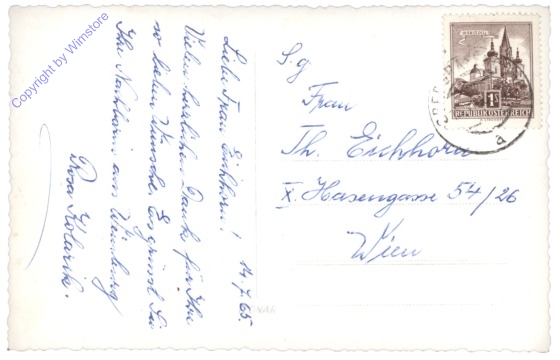 Liebe Frau Eichhorn! 14.7.65.
Vielen herzlichen Dank für Ihre
so lieben Wünsche. Es grüsst Sie
Ihre Nachbarin aus
Rosa Kolarik.
S.g
Frau
Th. Eichhorn
X. Hasengasse 54/26
Wien
MARIAZELL
1S
REPUBLIK ÖSTERREICH
a
Copyright by Wimstore